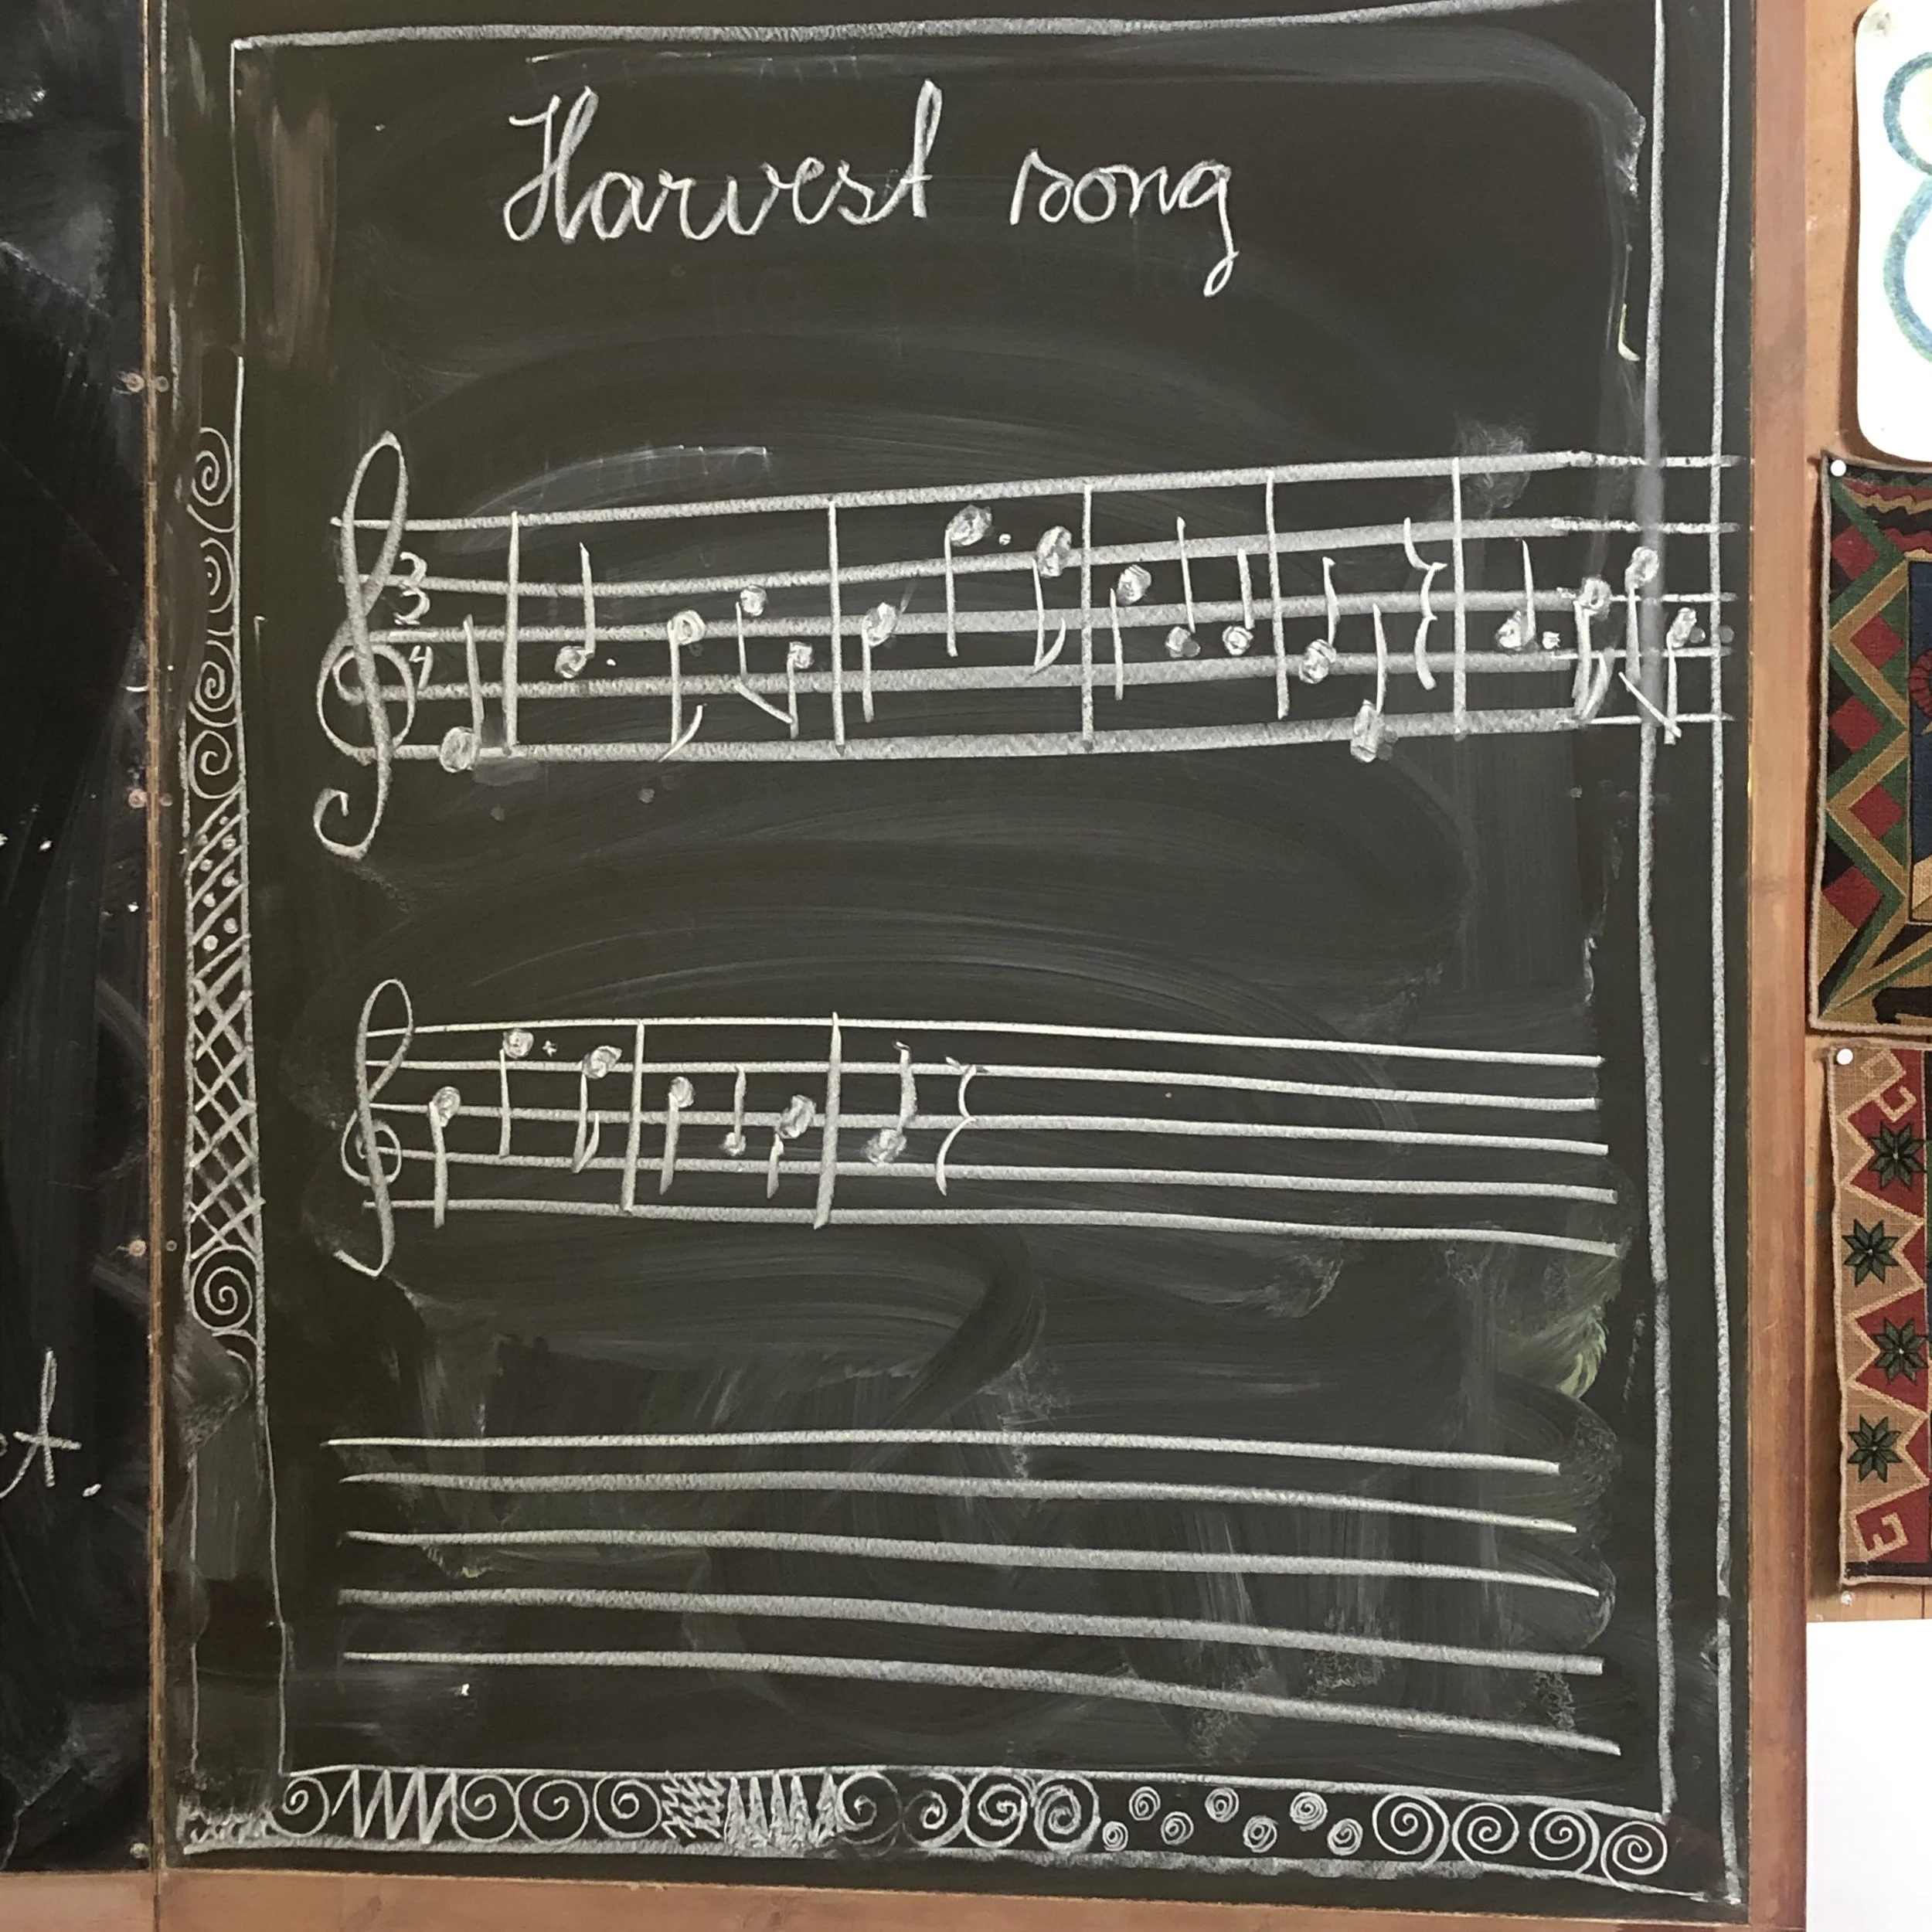 Harvest song
3
4
t.
8